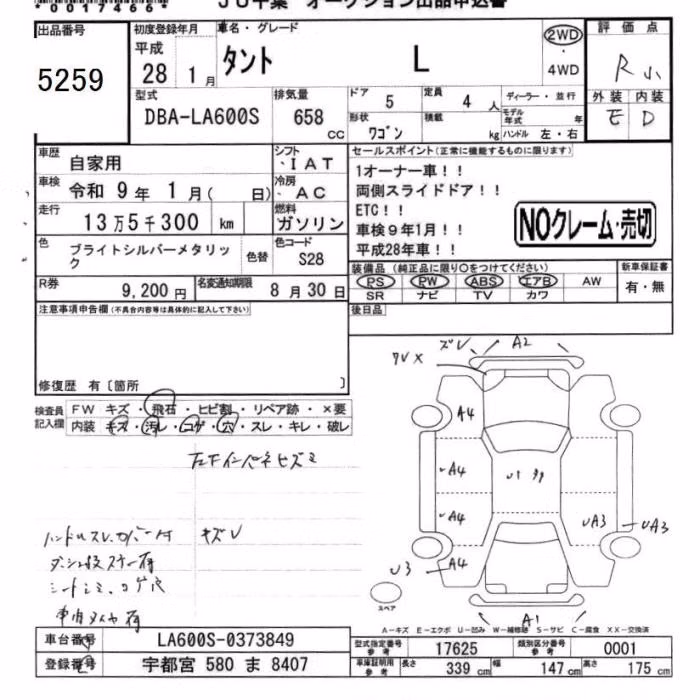 *0017466*
JU千葉 オークション出品申込書
出品番号
5259
初度登録年月
平成
28 1月
車名・グレード
タント L
2WD
・
4WD
評価点
R
外装 内装
E D
型式
DBA-LA600S
排気量
658
CC
ドア
5
定員
4 人
ディーラー・並行
形状
ワゴン
積載
kg
モデル年式
年
ハンドル 左・右
車歴
自家用
シフト
・IAT
車検
令和 9年 1月( 日)
冷房
・AC
走行
13万5千300 km
燃料
ガソリン
色
ブライトシルバーメタリック
色替
色コード
S28
R券
9,200円
名変通知期限
8月30日
セールスポイント(正常に機能するものに限ります)
1オーナー車!!
両側スライドドア!!
ETC!!
車検9年1月!!
平成28年車!!
NOクレーム・売切
装備品(純正品に限り○をつけてください)
PS PW ABS エアB AW
SR ナビ TV カワ
新車保証書
有・無
後日品
注意事項申告欄(不具合内容等は具体的に記入して下さい)
修復歴 有〔箇所 〕
検査員記入欄
FW キズ・飛石・ヒビ割・リペア跡・×要
内装 キズ・汚レ・コゲ・穴・スレ・キレ・破レ
キズV
ズレ A2
A4
A4
A4
A4
U3
UA3
UA3
A1
スペア
A-キズ E-エクボ U-凹み W-補修跡 S-サビ C-腐食 XX-交換済
車台番号
LA600S-0373849
登録番号
宇都宮 580 ま 8407
型式指定番号
参考
17625
類別区分番号
参考
0001
車庫証明用
参考
長さ 339cm
幅 147cm
高さ 175cm